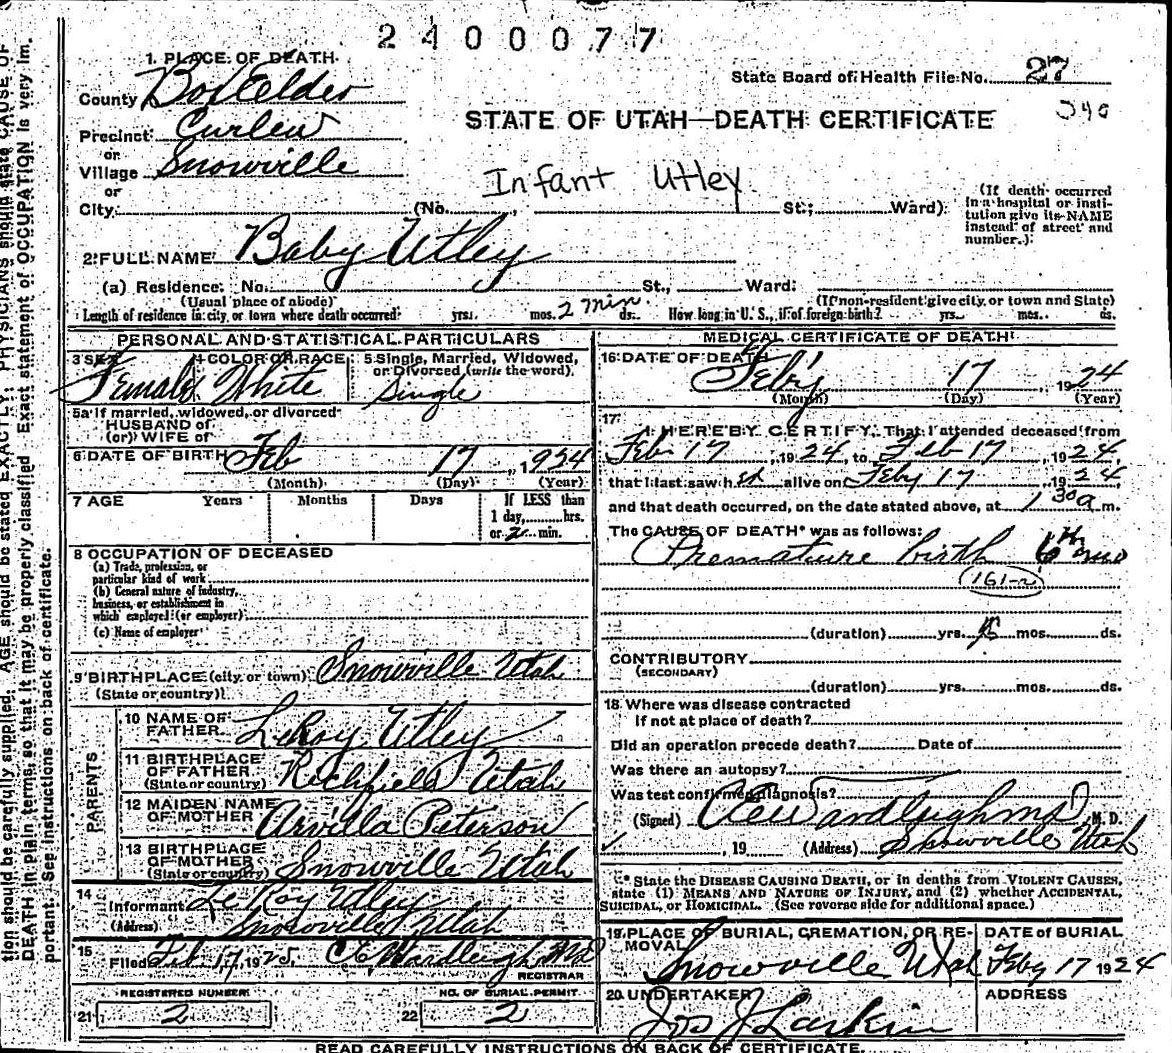 2400077
1. PLACE OF DEATH
State Board of Health File No. 27
County Box Elder
340
Precinct Curlew
STATE OF UTAH—DEATH CERTIFICATE
or
Village Snowville
Infant Utley
or
City (No. , St.; Ward)
(If death occurred in a hospital or institution give its NAME instead of street and number.)
2 FULL NAME Baby Utley
(a) Residence: No. St., Ward:
(Usual place of abode) (If non-resident give city or town and State)
Length of residence in city or town where death occurred yrs. mos. 2 min. ds. How long in U. S., if of foreign birth? yrs. mos. ds.
PERSONAL AND STATISTICAL PARTICULARS
3 SEX 4 COLOR OR RACE 5 Single, Married, Widowed, or Divorced (write the word)
Female White Single
5a If married, widowed, or divorced
HUSBAND of
(or) WIFE of
6 DATE OF BIRTH Feb 17, 1924
(Month) (Day) (Year)
7 AGE Years Months Days If LESS than
1 day, hrs.
or 2 min.
8 OCCUPATION OF DECEASED
(a) Trade, profession, or
particular kind of work
(b) General nature of industry,
business, or establishment in
which employed (or employer)
(c) Name of employer
9 BIRTHPLACE (city or town) Snowville Utah
(State or country)
PARENTS
10 NAME OF FATHER LeRoy Utley
11 BIRTHPLACE OF FATHER Richfield Utah
(State or country)
12 MAIDEN NAME OF MOTHER Arvilla Peterson
13 BIRTHPLACE OF MOTHER Snowville Utah
(State or country)
14
Informant Le Roy Utley
(Address) Snowville Utah
15
Filed Feb 17, 1925, C E Wardleigh MD
REGISTRAR
REGISTERED NUMBER NO. OF BURIAL PERMIT
21 2 22 2
MEDICAL CERTIFICATE OF DEATH
16 DATE OF DEATH
Feb'y 17 1924
(Month) (Day) (Year)
17
I HEREBY CERTIFY, That I attended deceased from
Feb 17, 1924, to Feb 17, 1924
that I last saw h alive on Feby 17, 1924
and that death occurred, on the date stated above, at 1 30 a m.
The CAUSE OF DEATH* was as follows:
Premature birth 6th mo
161-a
(duration) yrs. mos. ds.
CONTRIBUTORY
(SECONDARY)
(duration) yrs. mos. ds.
18 Where was disease contracted
if not at place of death?
Did an operation precede death? Date of
Was there an autopsy?
Was test confirmed diagnosis?
(Signed) C E Wardleigh md, M. D.
, 19 (Address) Snowville Utah
* State the DISEASE CAUSING DEATH, or in deaths from VIOLENT CAUSES,
state (1) MEANS AND NATURE OF INJURY, and (2) whether ACCIDENTAL,
SUICIDAL, or HOMICIDAL. (See reverse side for additional space.)
19 PLACE OF BURIAL, CREMATION, OR REMOVAL DATE of BURIAL
Snowville Utah Feby 17 1924
20 UNDERTAKER ADDRESS
Jos J Larkin
READ CAREFULLY INSTRUCTIONS ON BACK OF CERTIFICATE.
tion should be carefully supplied. AGE should be stated EXACTLY. PHYSICIANS should state CAUSE OF
DEATH in plain terms, so that it may be properly classified. Exact statement of OCCUPATION is very im-
portant. See instructions on back of certificate.